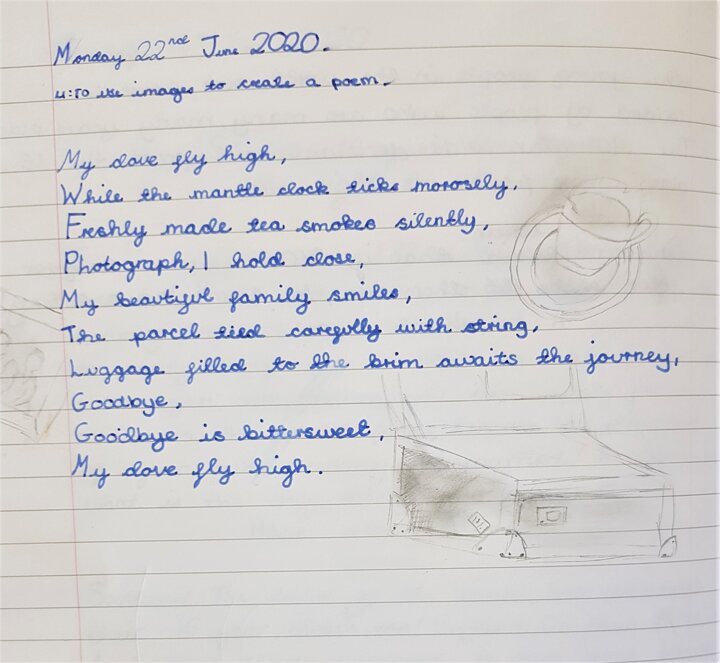 Monday 22nd June 2020.
LI: To use images to create a poem.
My dove fly high,
While the mantle clock ticks morosely.
Freshly made tea smokes silently,
Photograph, I hold close,
My beautiful family smiles,
The parcel tied carefully with string,
Luggage filled to the brim awaits the journey,
Goodbye,
Goodbye is bittersweet,
My dove fly high.